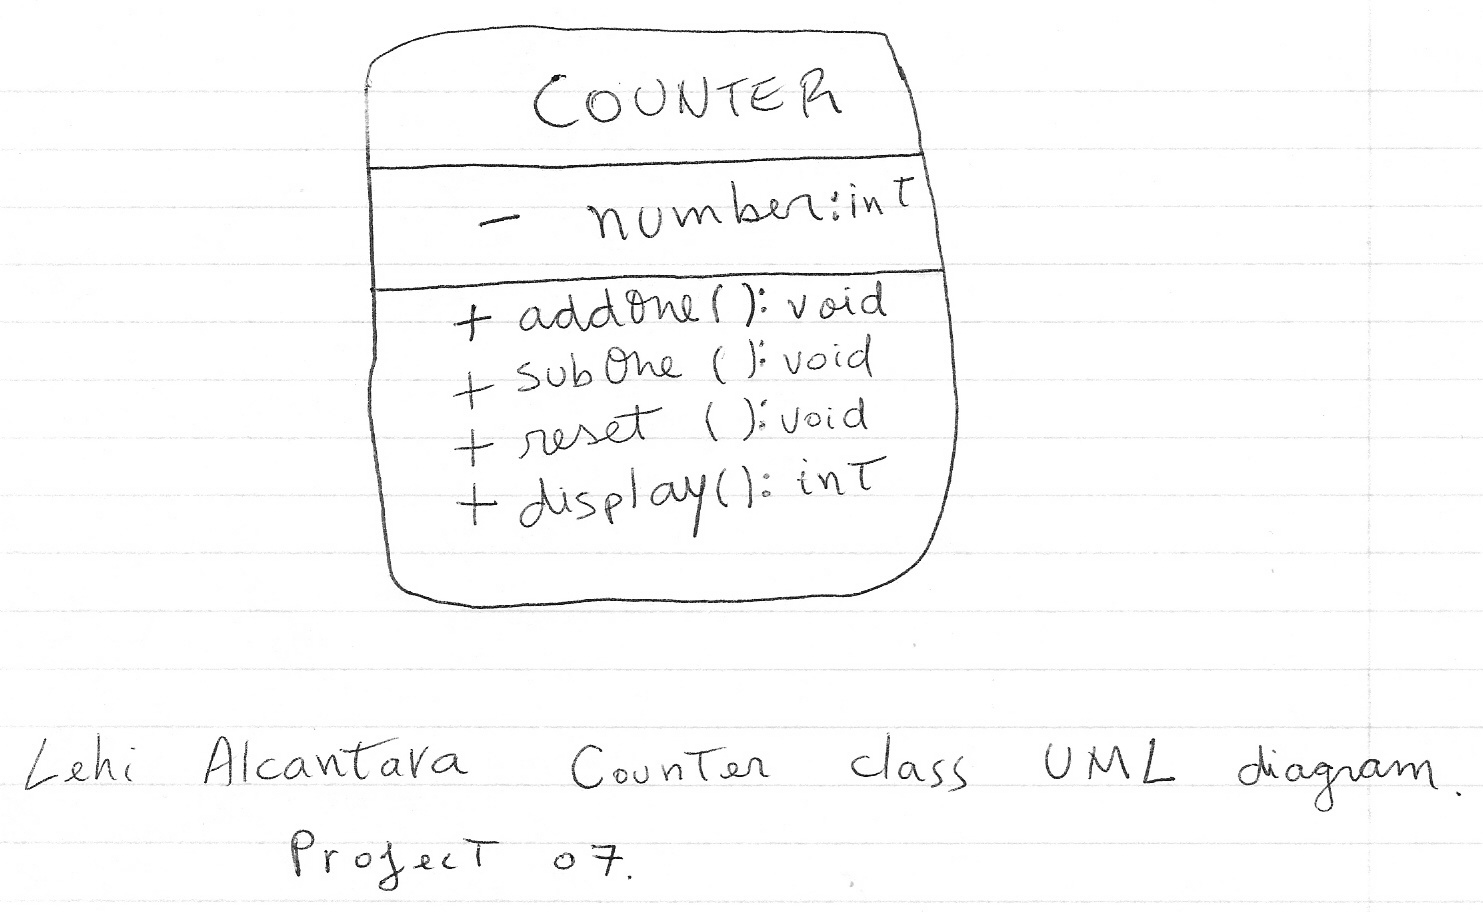 COUNTER
- number:int
+ addOne(): void
+ subOne (): void
+ reset (): void
+ display(): int
Lehi Alcantara Counter class UML diagram.
Project 07.